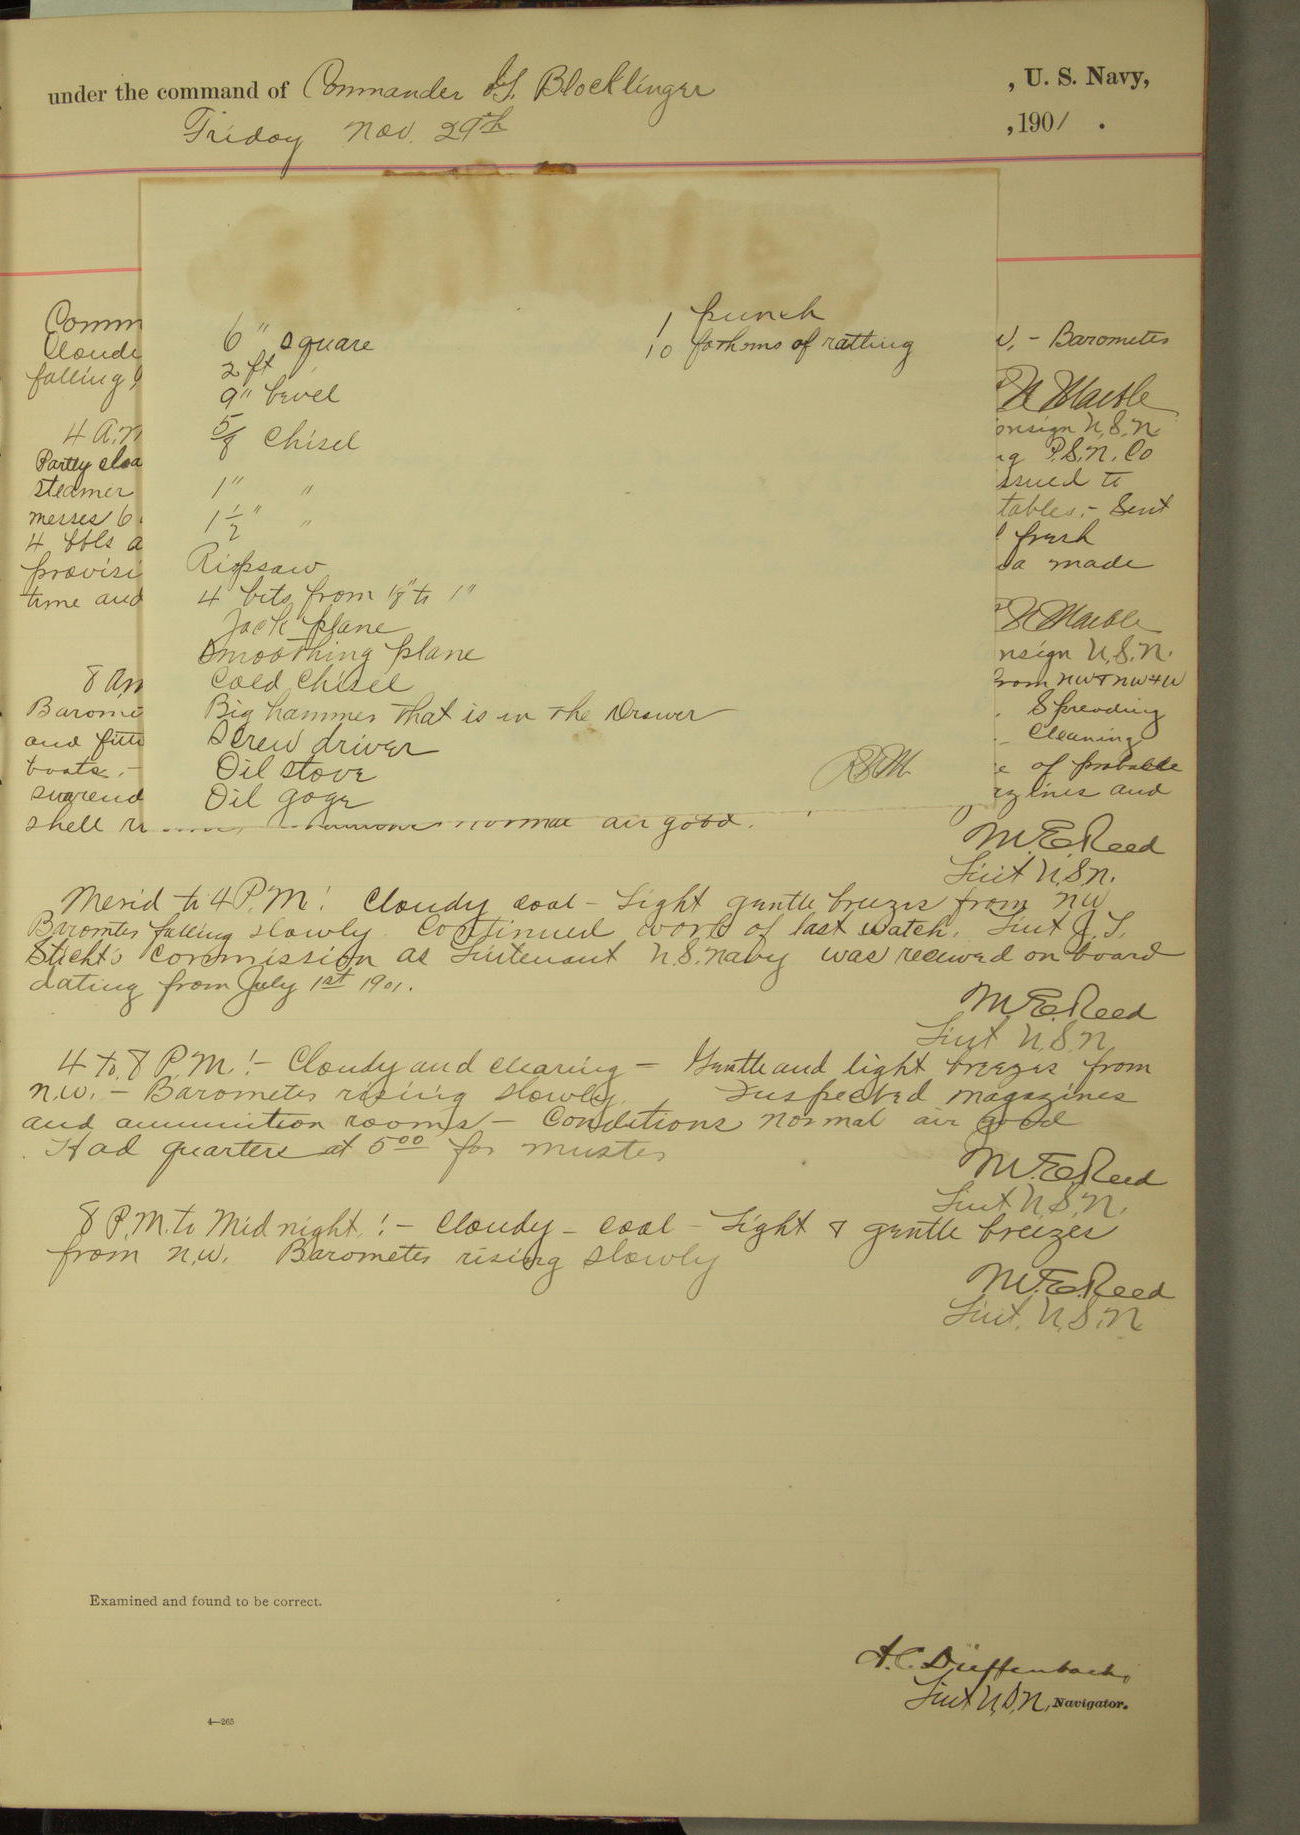 under the command of Commander G. Blocklinger, U. S. Navy,
Friday Nov. 29th, 1901.
1 punch
6" square
10 fathoms of ratling
2 ft "
9" bevel
5/8 Chisel
1" "
1 1/2" "
Ripsaw
4 bits from 1/8" to 1"
Jack plane
Smoothing plane
Cold Chisel
Big hammer that is in the Drawer
Screw driver
Oil stove
Oil goge
RSM
Comm
Cloudy
- Barometer
falling
N Marble
Ensign U.S.N.
4 A.M
Partly cloa
P.S.N. Co
steamer
issued to
messes 6
tables. - Sent
4 bbls a
fresh
provisi
made
time and
N Marble
Ensign U.S.N.
8 Am
from NW & NW 4 W
Barome
Spreading
and fitt
Cleaning
boats. -
of probable
surrend
magazines and
shell r normal air good.
M.E. Reed
Lieut U.S.N.
Merid to 4 P.M: Cloudy cool - Light gentle breezes from NW
Barometer falling slowly. Continued work of last watch. Lieut J.T.
Sticht's Commission as Lieutenant U.S. Navy was received on board
dating from July 1st 1901.
M.E. Reed
Lieut U.S.N.
4 to 8 P.M: - Cloudy and clearing - Gentle and light breezes from
N.W. - Barometer rising slowly. Inspected magazines
and ammunition rooms - Conditions normal air good
Had quarters at 5 00 for muster
M.E. Reed
Lieut U.S.N.
8 P.M. to Midnight: - Cloudy - cool - Light & gentle breezes
from N.W. Barometer rising slowly
M.E. Reed
Lieut. U.S.N
Examined and found to be correct.
A.C. Dieffenbach,
Lieut U.S.N, Navigator.
4-265